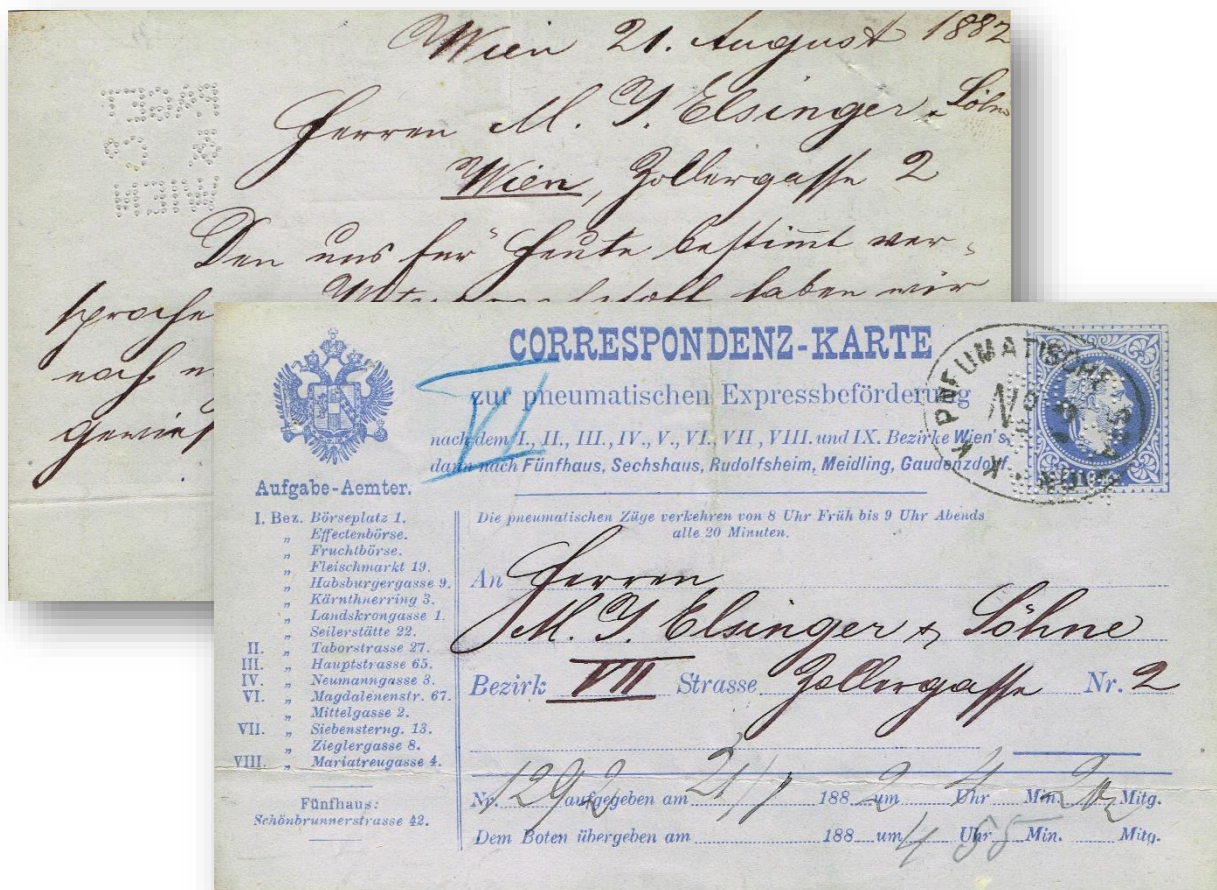 Wien 21. August 1882
Herren M. J. Elsinger & Söhne
Wien, Zollergasse 2
Den uns für heute bestimmt ver-
sproche
haben wir
noch
PAGET
& Co
WIEN
CORRESPONDENZ-KARTE
zur pneumatischen Expressbeförderung
nach dem I., II., III., IV., V., VI., VII., VIII. und IX. Bezirke Wien's,
dann nach Fünfhaus, Sechshaus, Rudolfsheim, Meidling, Gaudenzdorf.
VI
K K PNEUMATISCHE
Aufgabe-Aemter.
I. Bez. Börseplatz 1.
„ Effectenbörse.
„ Fruchtbörse.
„ Fleischmarkt 19.
„ Habsburgergasse 9.
„ Kärnthnerring 3.
„ Landskrongasse 1.
„ Seilerstätte 22.
II. „ Taborstrasse 27.
III. „ Hauptstrasse 65.
IV. „ Neumanngasse 3.
VI. „ Magdalenenstr. 67.
„ Mittelgasse 2.
VII. „ Siebensterng. 13.
„ Zieglergasse 8.
VIII. „ Mariatreugasse 4.
Fünfhaus:
Schönbrunnerstrasse 42.
Die pneumatischen Züge verkehren von 8 Uhr Früh bis 9 Uhr Abends
alle 20 Minuten.
An Herren
M. J. Elsinger & Söhne
Bezirk VII Strasse Zollergasse Nr. 2
Nr. 1292 aufgegeben am 21/ 1882 um 4 Uhr Min. 20 Mitg.
Dem Boten übergeben am 188 um 4 Uhr 55 Min. Mitg.